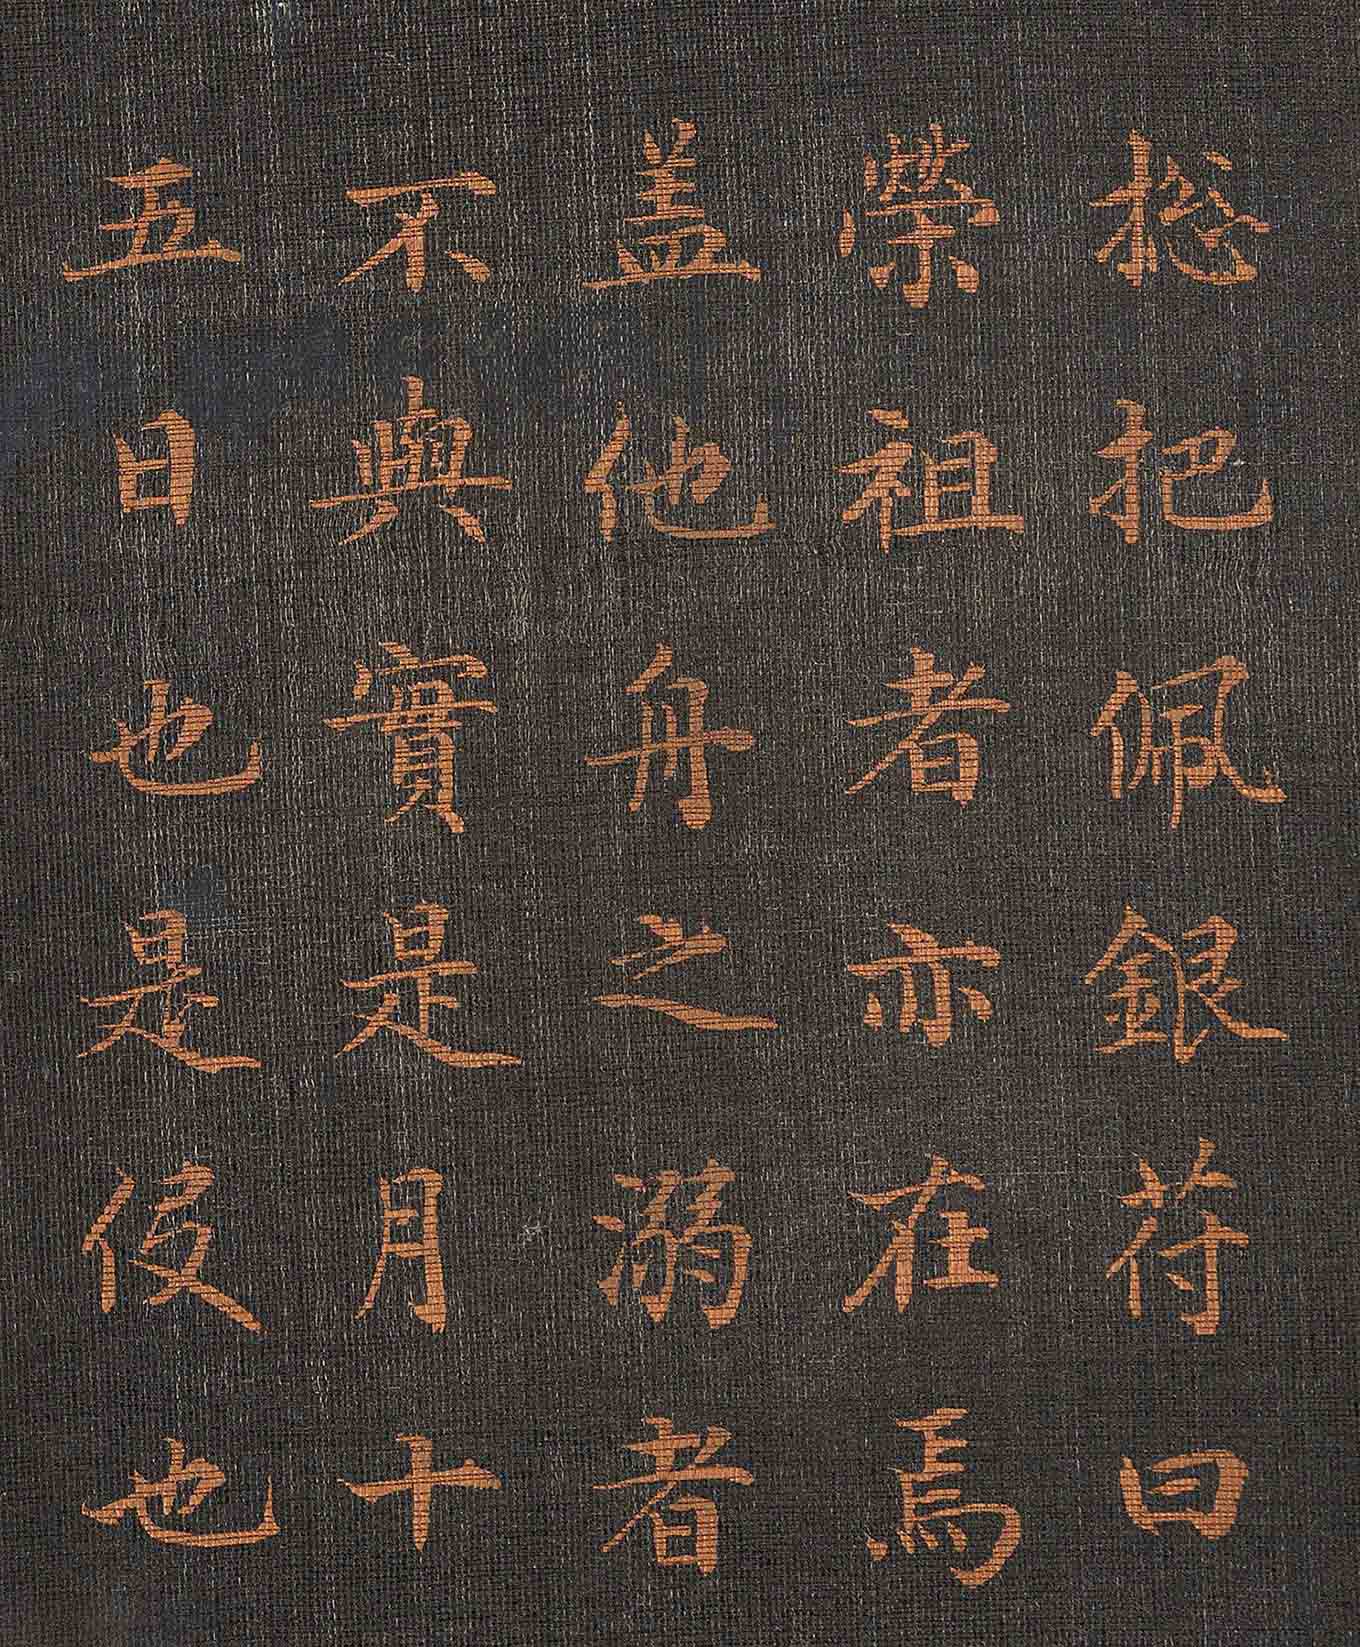 捴把佩銀苻曰
榮祖者亦在焉
盖他舟之溺者
不與實是月十
五日也是伇也